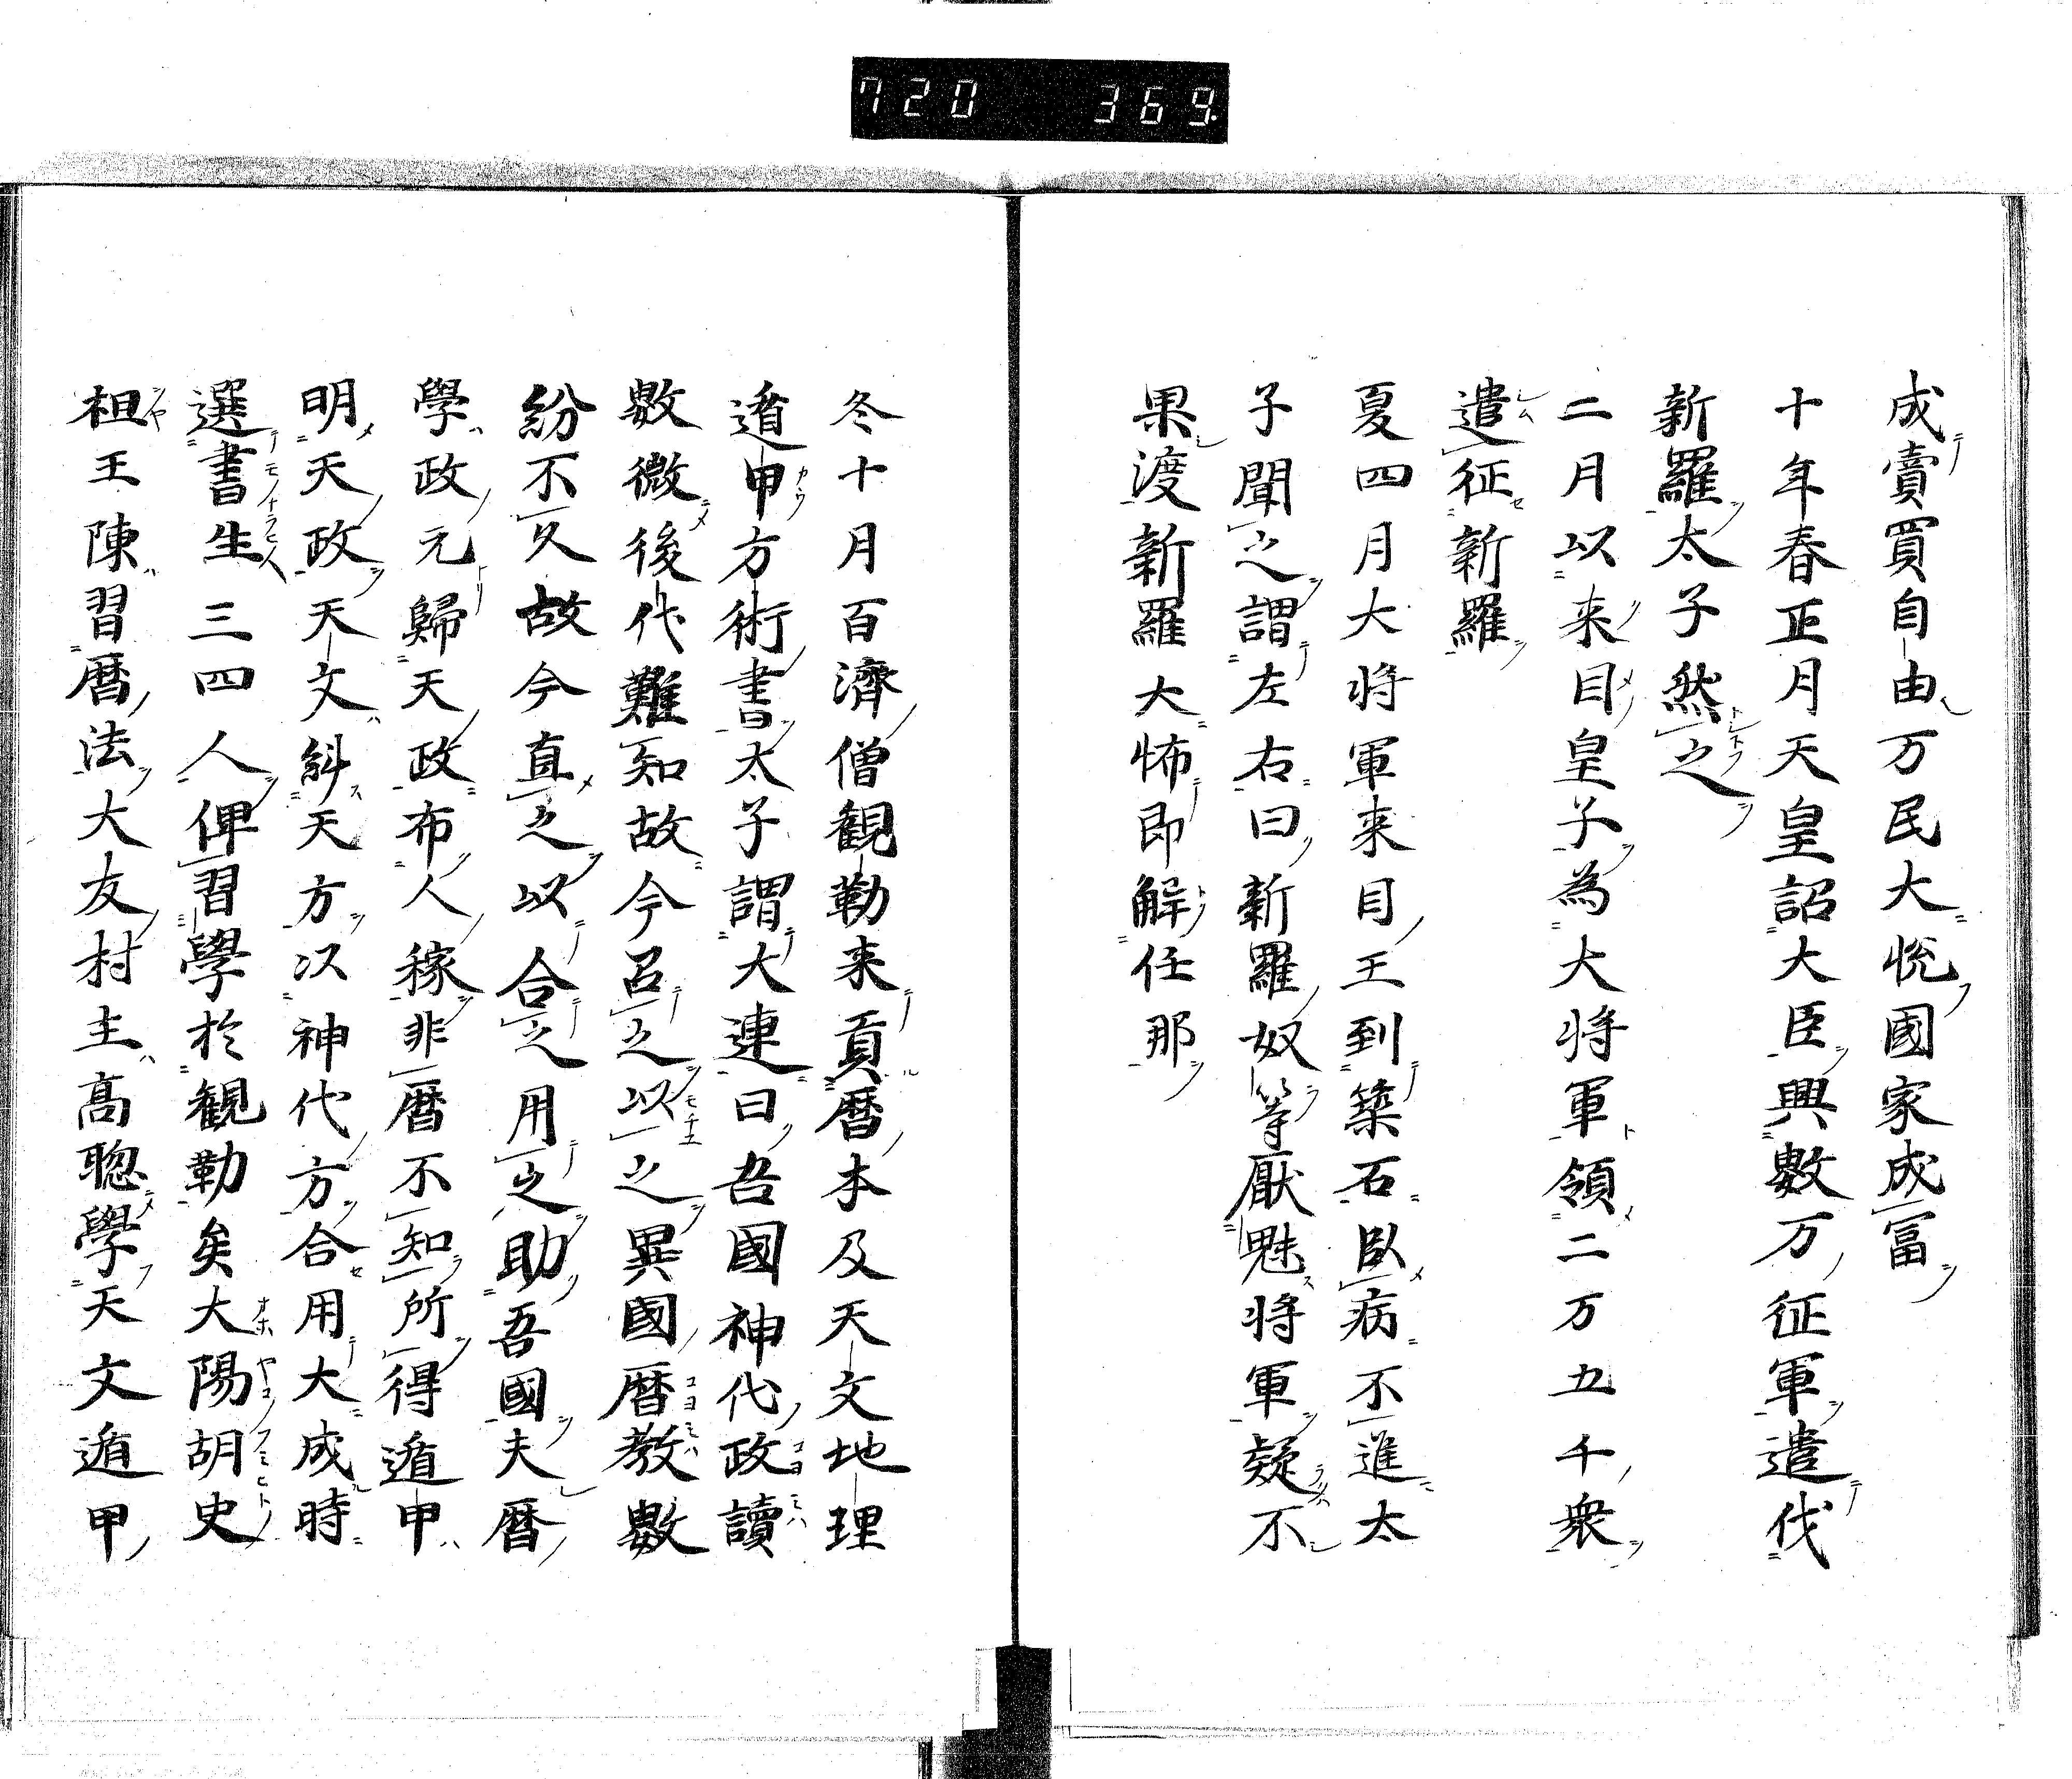 720 369
成賣買自由万民大悦國家成富
十年春正月天皇詔大臣興數万征軍遣伐
新羅太子然之
二月以来目皇子為大将軍領二万五千衆
遣征新羅
夏四月大将軍来目王到築石臥病不進太
子聞之謂左右曰新羅奴等厭魅将軍疑不
果渡新羅大怖即解任那
冬十月百濟僧観勒来貢暦本及天文地理
遁甲方術書太子謂大連曰吾國神代政讀
數微後代難知故今召之以之異國暦教數
紛不久故今直之以合之用之助吾國夫暦
學政元歸天政布人稼非暦不知所得遁甲
明天政天文糾天方以神代方合用大成時
選書生三四人俾習學於観勒矣大陽胡史
祖王陳習暦法大友村主高聡學天文遁甲